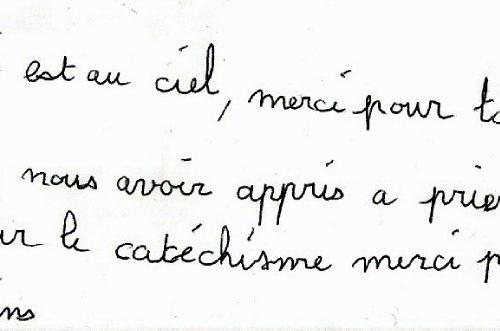 est au ciel, merci pour
nous avoir appris a
le catéchisme merci